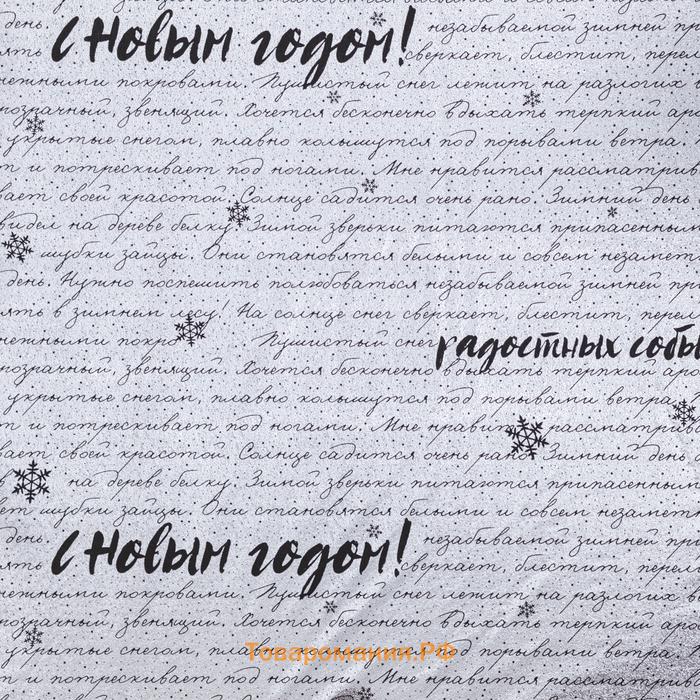 день.
С Новым годом!
незабываемой зимней
сверкает, блестит,
нежными покровами. Пушистый снег лежит на разлогих
прозрачный, звенящий. Хочется бесконечно вдыхать терпкий аро
укрытые снегом, плавно колышутся под порывами ветра.
т и потрескивает под ногами. Мне нравится рассматрив
вает своей красотой. Солнце садится очень рано. Зимний день
видел на дереве белку. Зимой зверьки питаются припасенным
шубки зайцы. Они становятся белыми и совсем незамет
день. Нужно поспешить полюбоваться незабываемой зимней пр
ять в зимнем лесу! На солнце снег сверкает, блестит, перел
нежными покро Пушистый снег
радостных собы
прозрачный, звенящий. Хочется бесконечно вдыхать терпкий аро
укрытые снегом, плавно колышутся под порывами ветра
т и потрескивает под ногами. Мне нравит рассматрив
вает своей красотой. Солнце садится очень рано Зимний день
на дереве белку. Зимой зверьки питаются припасенным
ет шубки зайцы. Они становятся белыми и совсем незамет
день.
С Новым годом!
незабываемой зимней
ять сверкает, блестит, перел
нежными покровами. Пушистый снег лежит на разлогих в
прозрачный, звенящий. Хочется бесконечно вдыхать терпкий аро
укрытые снегом, плавно колышутся под порывами ветра.
Товаромания.РФ
т и потрескивает под ногами. Мне нравится рассматрив